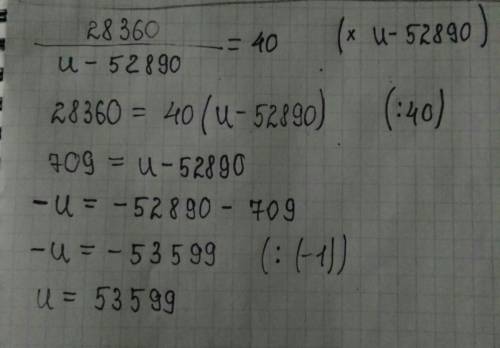 28360 / u - 52890 = 40 (× u - 52890)
28360 = 40 (u - 52890) (:40)
709 = u - 52890
-u = -52890 - 709
-u = -53599 (: (-1))
u = 53599